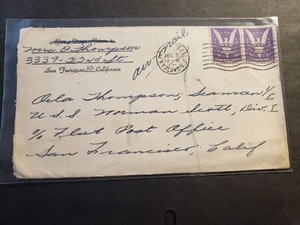 Mrs O. Thompson
3339-22nd Street
San Francisco, 10 California
air mail
Orla Thompson, Seaman 1/c
U.S.S. Norman Scott, Div. I
c/o Fleet Post Office
San Francisco, Calif